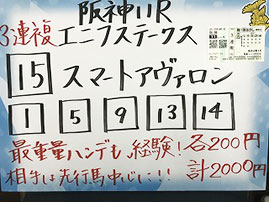 阪神11R
3連複 エニフステークス
15 スマートアヴァロン
1 5 9 13 14
最重量ハンデも、経験！各200円
相手は先行馬中心に!! 計2000円